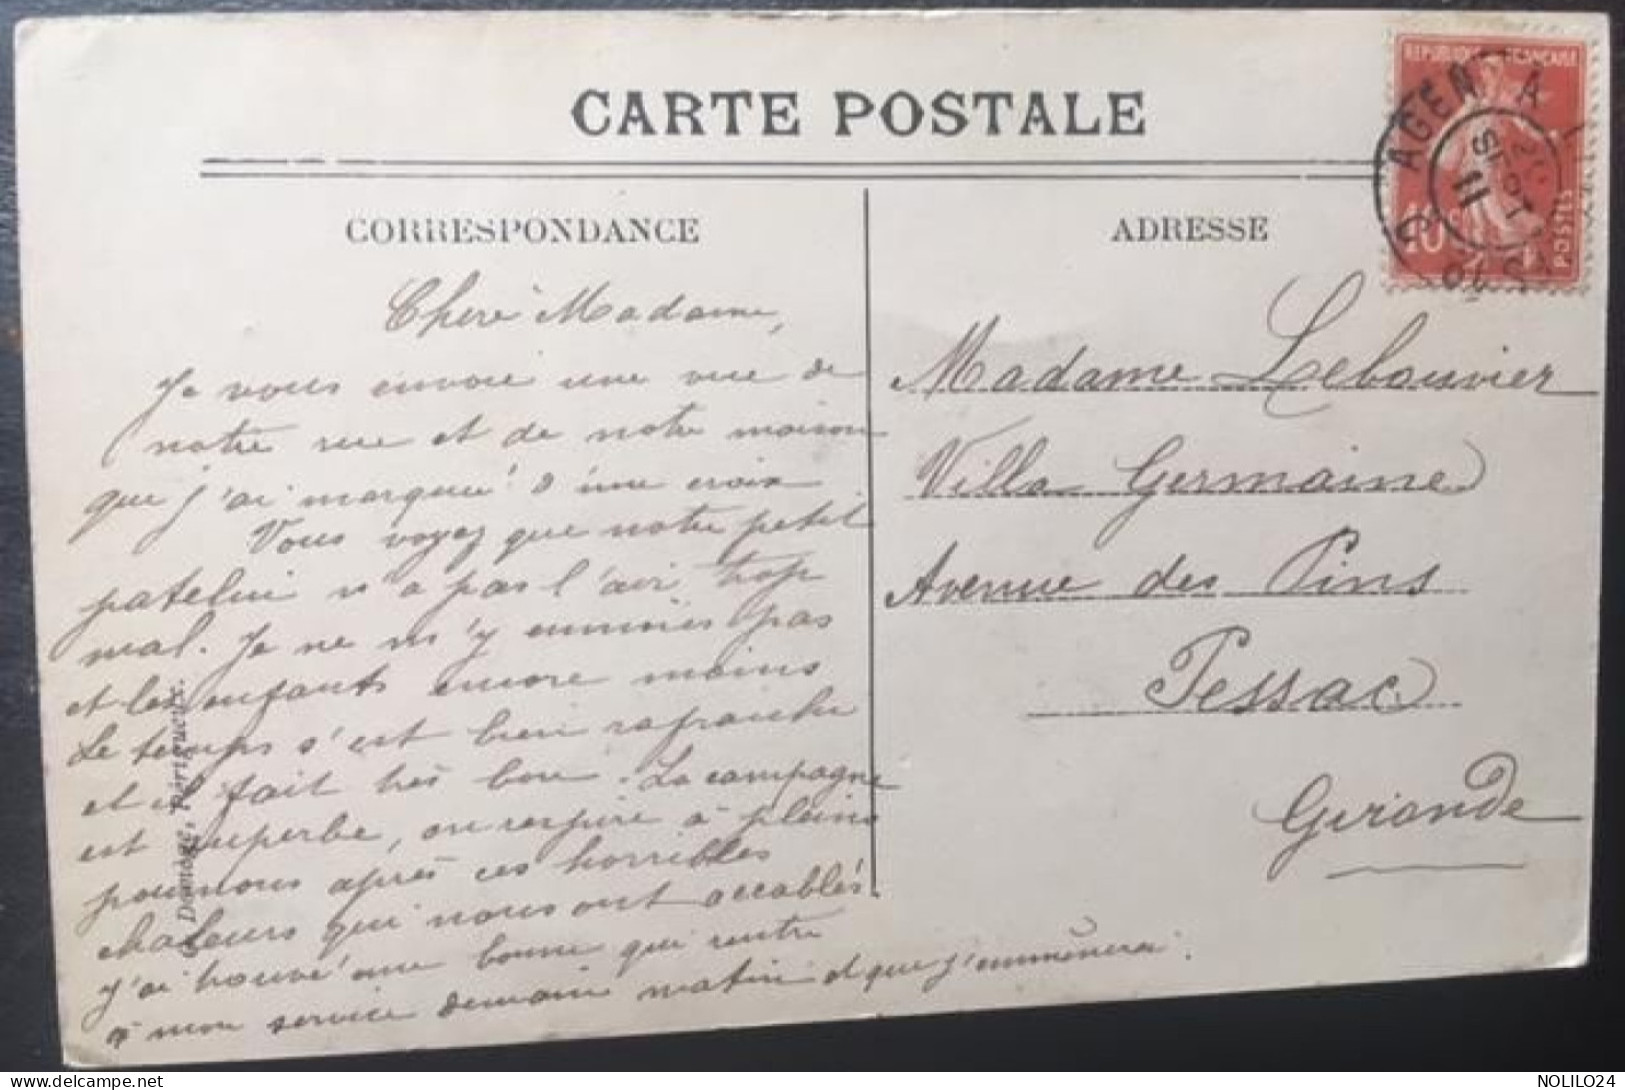 CARTE POSTALE
CORRESPONDANCE
Chère Madame,
Je vous envoie une vue de
notre rue et de notre maison
que j'ai marqueé d'une croix
Vous voyez que notre petit
patelin n'a pas l'air trop
mal. Je ne m'y ennuies pas
et les enfants encore moins
Le temps s'est bien rafraichi
et il fait très bon. La campagne
est superbe, on respire à pleins
poumons après ces horribles
chaleurs qui nous ont accablés.
J'ai trouvé une bonne qui rentre
à mon service demain matin et que j'emmènerai.
Domège, Périgueux.
ADRESSE
Madame Lebouvier
Villa Germaine
Avenue des Pins
Pessac
Gironde
REPUBLIQUE FRANÇAISE
10c
POSTES
AGEN A
SEPT
11
NOLILO24